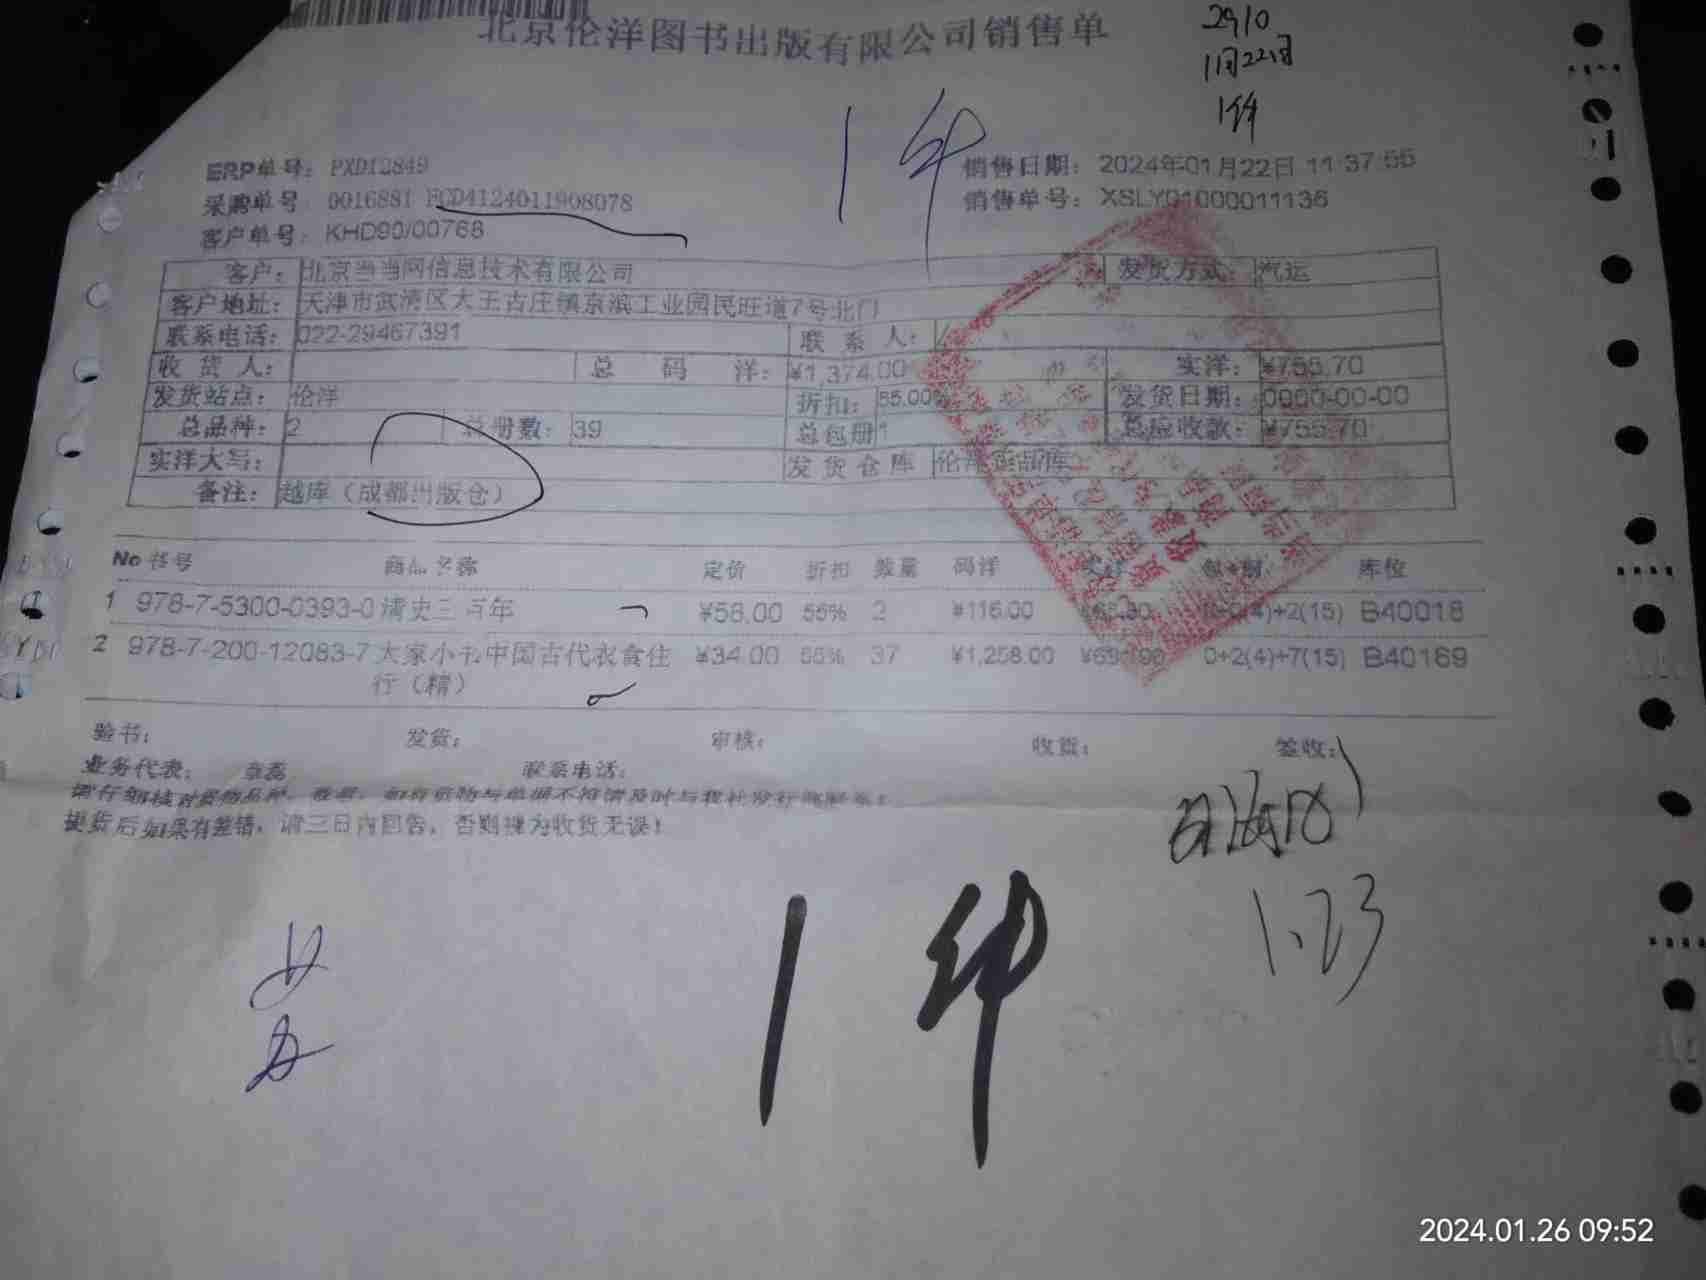 北京伦洋图书出版有限公司销售单
2910
11月22日
1件
1件
ERP单号: PXD12849
销售日期: 2024年01月22日 11:37:55
采购单号: 0016881 PCD4124011908078
销售单号: XSLY01000011136
客户单号: KHD90/00768
客户: 北京当当网信息技术有限公司 发货方式: 汽运
客户地址: 天津市武清区大王古庄镇京滨工业园民旺道7号北门
联系电话: 022-29467391 联系人:
收货人: 总码洋: ¥1,374.00 实洋: ¥755.70
发货站点: 伦洋 折扣: 55.00% 发货日期: 0000-00-00
总品种: 2 总册数: 39 总包册 1 总应收款: ¥755.70
实洋大写: 发货仓库 伦洋
备注: 越库（成都出版仓）
No 书号 商品名称 定价 折扣 数量 码洋 实洋 库位
1 978-7-5300-0393-0 清史三百年 ¥58.00 55% 2 ¥116.00 +2(15) B40018
2 978-7-200-12083-7 大家小书中国古代衣食住 ¥34.00 55% 37 ¥1,258.00 0+2(4)+7(15) B40169
行（精）
验书: 发货: 审核: 收货: 签收:
业务代表: 章磊 联系电话:
请仔细核对货物品种、数量，如有货物与单据不符请及时与我社发行部联系!
提货后如果有差错，请三日内回告，否则视为收货无误!
1.23
1件
2024.01.26 09:52